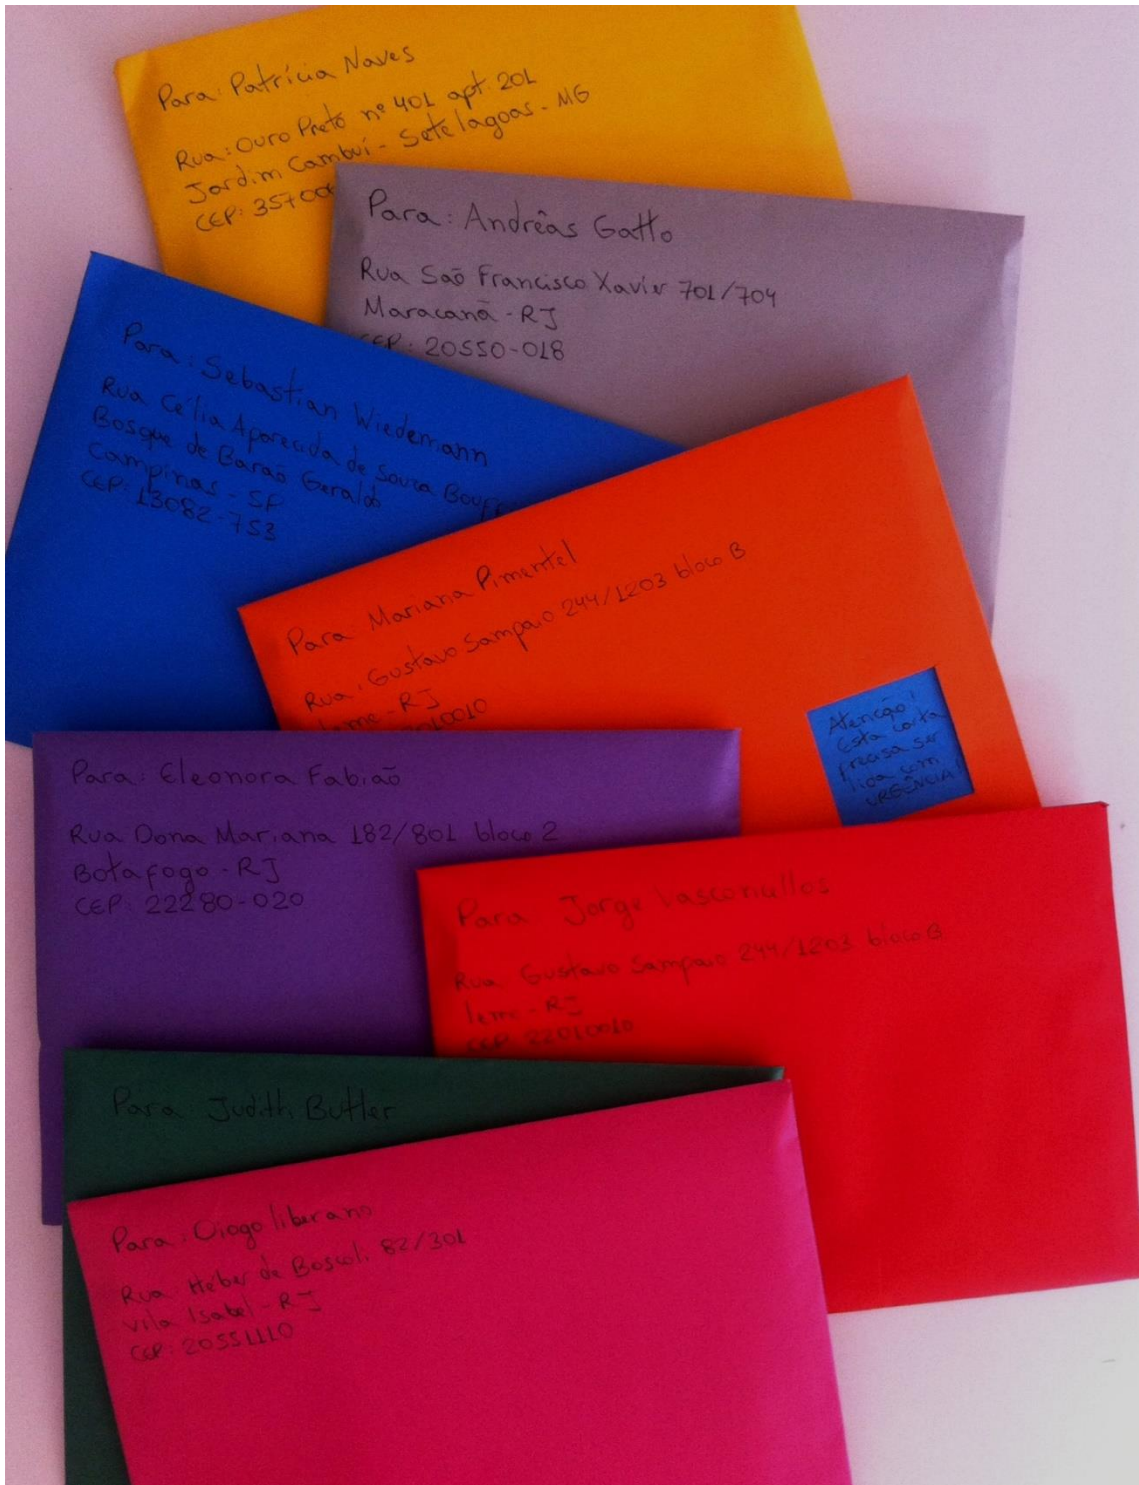 Para: Patrícia Naves
Rua: Ouro Preto nº 401 apt. 201
Jardim Cambuí - Sete lagoas - MG
CEP: 35700
Para: Andrêas Gatto
Rua Saõ Francisco Xavier 701/704
Maracanã - RJ
CEP: 20550-018
Para: Sebastian Wiedemann
Rua Célia Aparecida de Souza
Bosque de Baraõ Geraldo
Campinas - SP
CEP: 13082-753
Para: Mariana Pimentel
Rua: Gustavo Sampaio 244/1203 bloco B
leme - RJ
010010
Atenção!
Esta carta
precisa ser
lida com
URGÊNCIA!
Para: Eleonora Fabiaõ
Rua Dona Mariana 182/801 bloco 2
Botafogo - RJ
CEP: 22280-020
Para Jorge Vasconcellos
Rua Gustavo Sampaio 244/1203 bloco B
leme - RJ
CEP: 22010010
Para: Judith Butler
Para: Diogo liberano
Rua Heber de Boscoli 82/301
Vila Isabel - RJ
CEP: 20551110